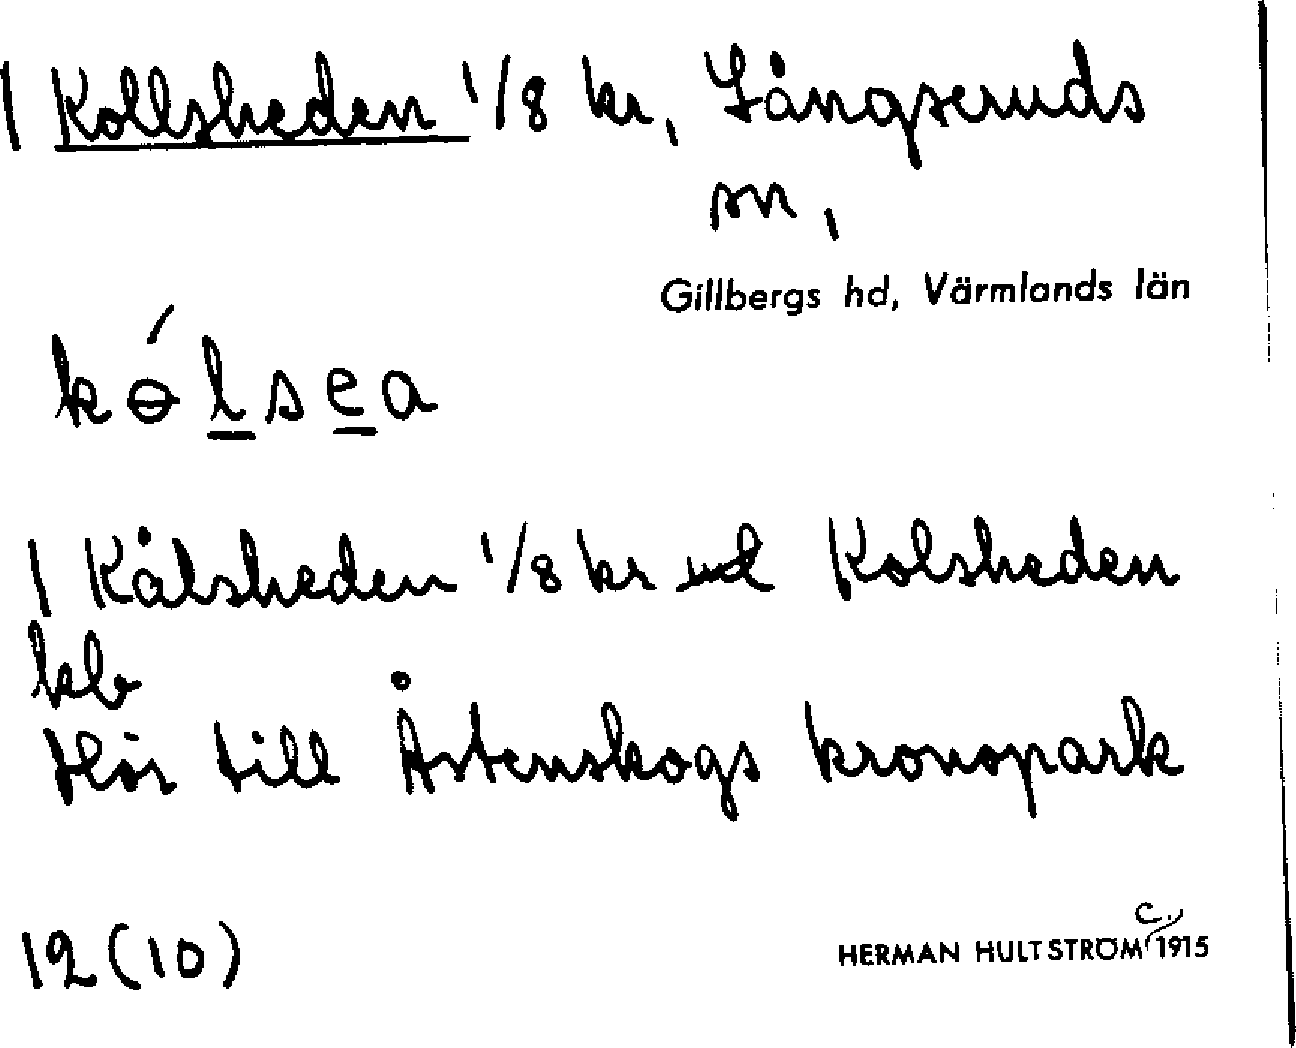 1 Kollsheden 1/8 kr, Långseruds
sn,
Gillbergs hd, Värmlands län
kɵ́lsea
1 Kålsheden 1/8 kr Kolsheden
kb
Hör till Åstenskogs kronopark
12 (10)
HERMAN HULTSTRÖM c. 1915